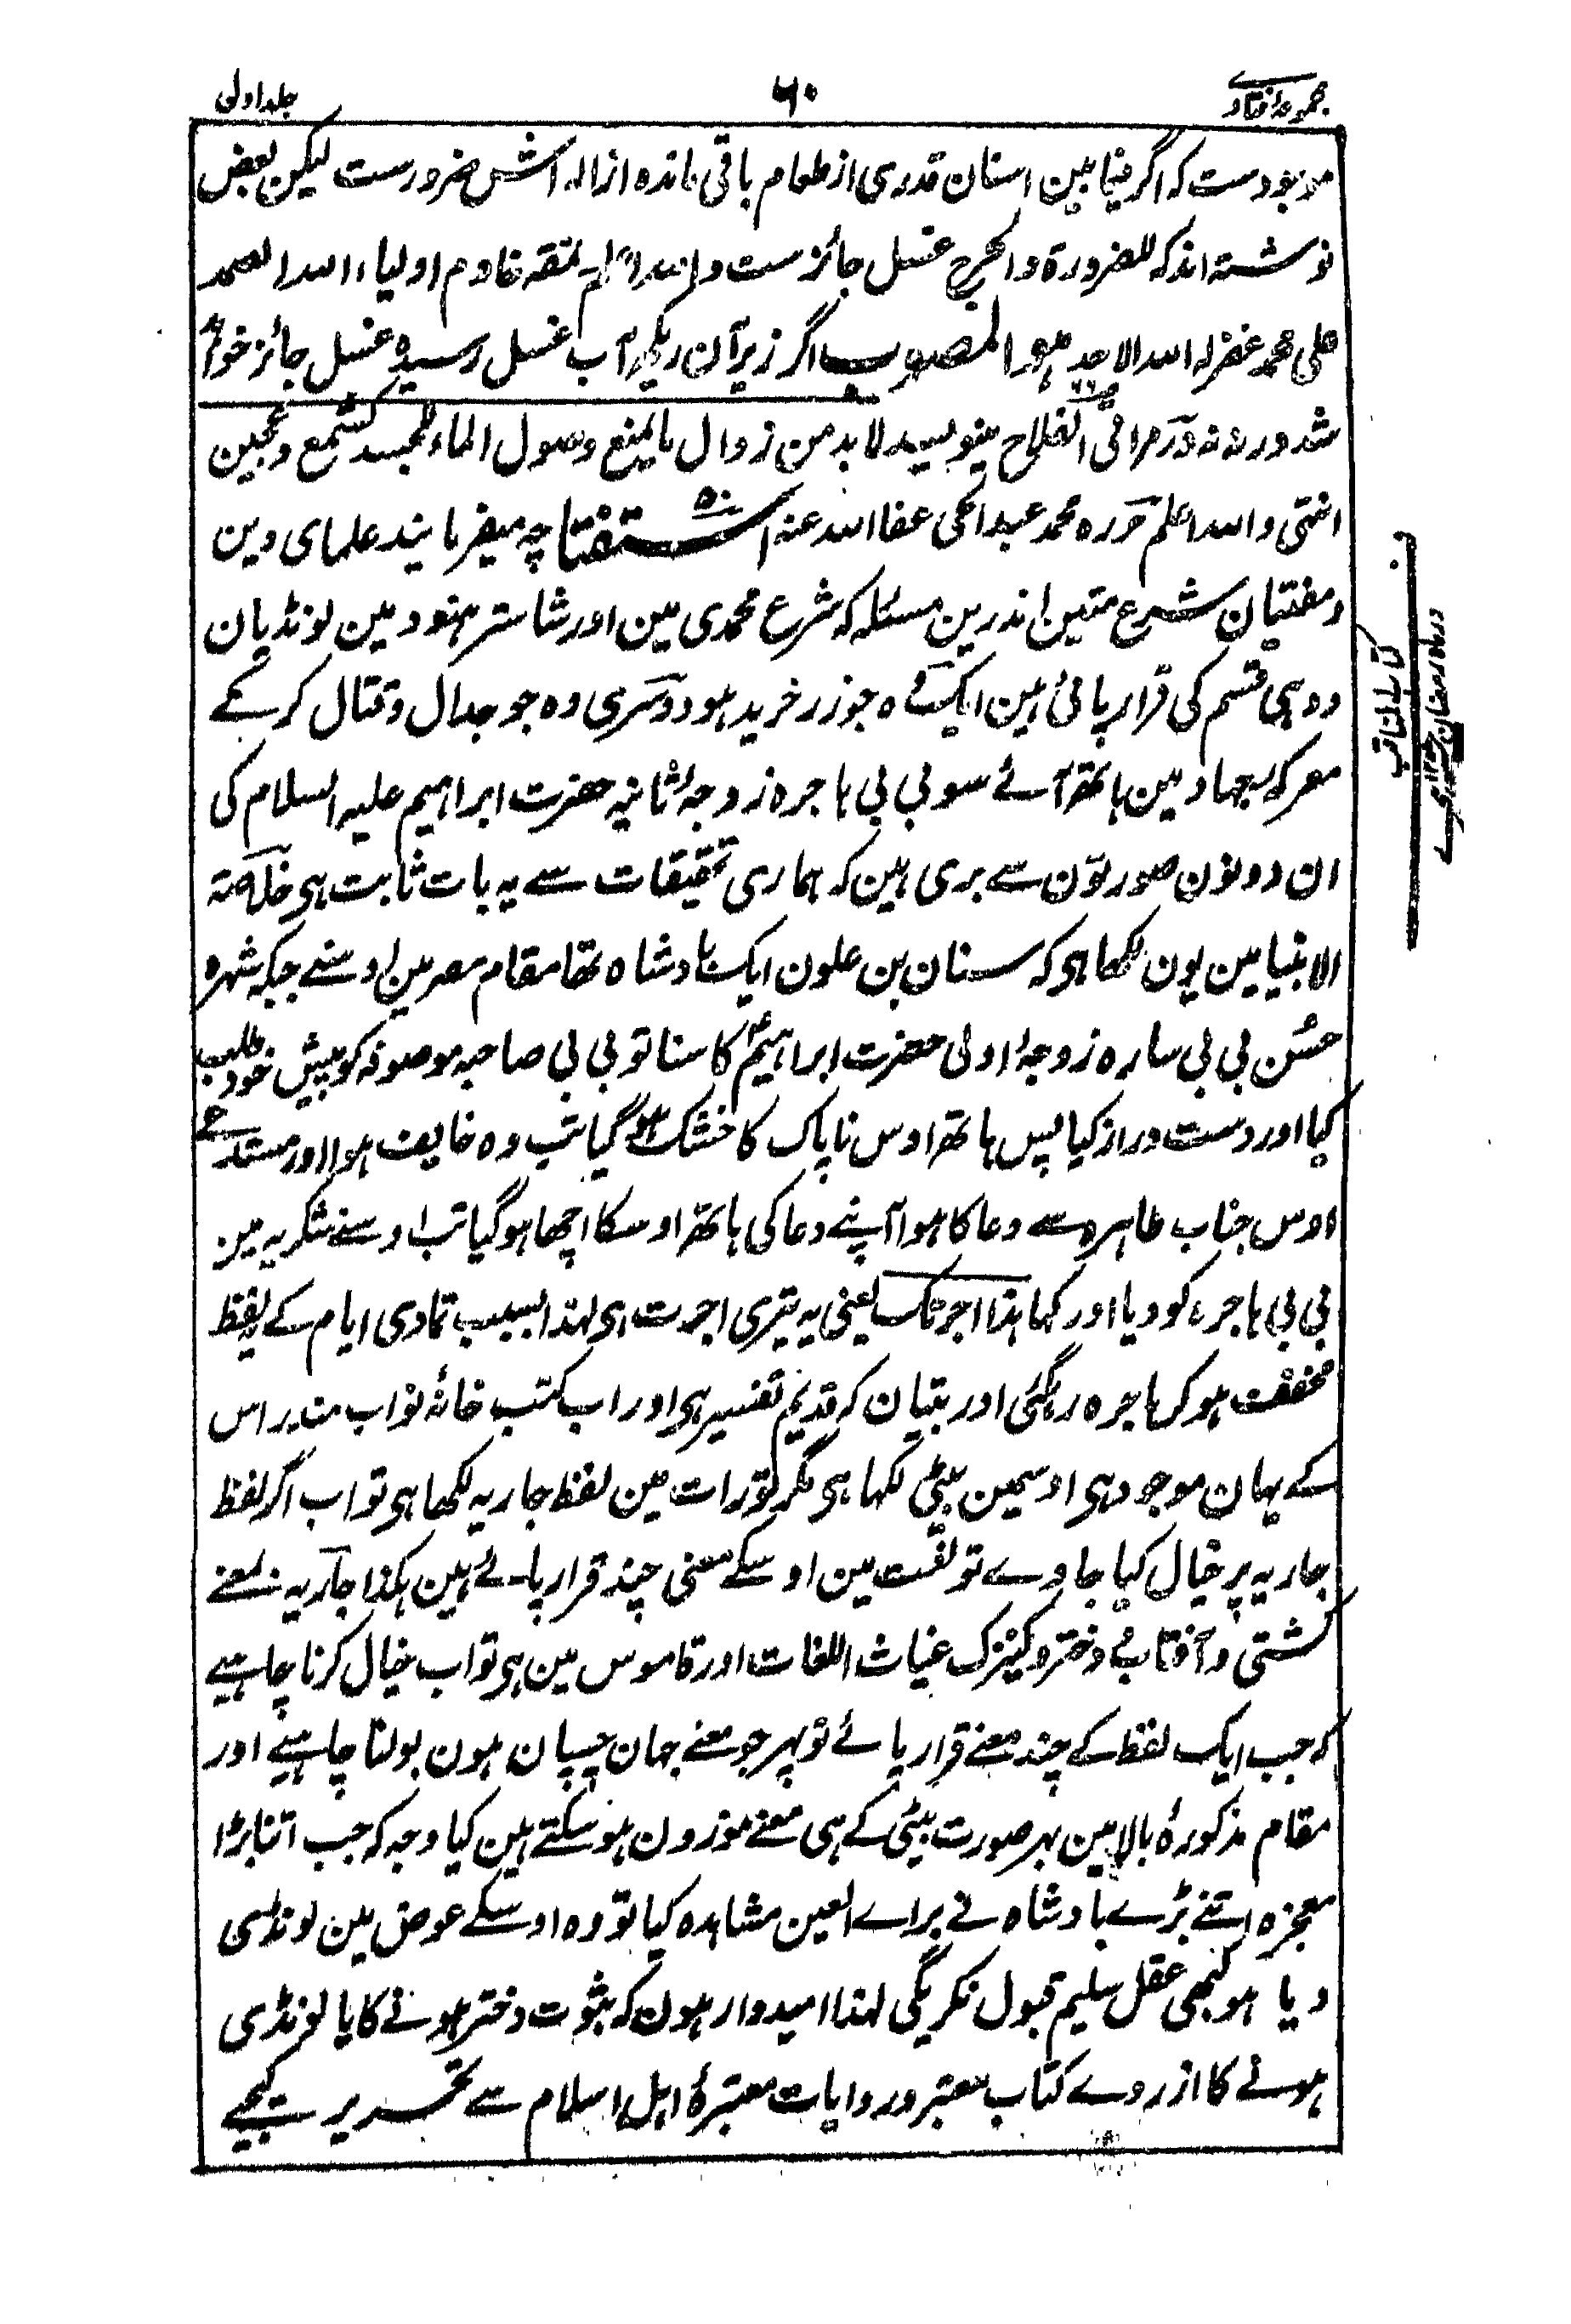 مجموعہ فتاوے
۶۰
جلد اولی
موجودست کہ اگر فیمابین اسنان قدری از طعام باقی ماندہ ازالہ اش ضرورست لیکن بعض
نوشتہ اند کہ للضرورة والحرج غسل جائزست واللہ اعلم نمقہ خادم اولیاء اللہ الصمد
علی محمد غفرلہ اللہ الاحد ہو المصوب اگر زیر آن ریم آب غسل رسیدہ غسل جائز خواہد
شد ورنہ نہ در مراقی الفلاح مینویسد لا بد من زوال ما یمنع وصول الماء للجسد کشمع وعجین
انتہی واللہ اعلم حررہ محمد عبدالحی عفا اللہ عنہ استفتا ۵۰ چہ میفرمایند علمای دین
ومفتیان شرع متین اندرین مسئلہ کہ شرع محمدی مین اور شاستر ہنود مین لونڈیان
دو ہی قسم کی قرار پائی ہین ایک وہ جو زر خرید ہو دوسری وہ جو جدال وقتال کر کے
معرکہ جہاد مین ہاتھ آئے سو بی بی ہاجرہ زوجۂ ثانیہ حضرت ابراہیم علیہ السلام کی
ان دونون صورتون سے بری ہین کہ ہماری تحقیقات سے یہ بات ثابت ہی خلاصۃ
الانبیا مین یون لکھا ہی کہ سنان بن علون ایک بادشاہ تھا مقام مصر مین اوسنے جبکہ شہرہ
حسُن بی بی سارہ زوجۂ اولی حضرت ابراہیمؑ کا سنا تو بی بی صاحبہ موصوفہ کو پیش خود طلب
کیا اور دست دراز کیا پس ہاتھ اوس ناپاک کا خشک ہو گیا تب وہ خایف ہوا اور مستدعی
اوس جناب طاہرہ سے دعا کا ہوا آپنے دعا کی ہاتھ اوسکا اچھا ہو گیا تب اوسنے شکریہ مین
بی بی ہاجرہ کو دیا اور کہا ہذا اجرتک یعنی یہ تیری اجرت ہی لہذا بسبب تمادی ایام کے یہ لفظ
مخفف ہو کر ہاجرہ رہگئی اور بتیان کہ قدیم تفسیر ہی اور اب کتب خانۂ نواب مندراس
کے یہان موجود ہی اوسمین بیٹی لکھا ہی مگر تورات مین لفظ جاریہ لکھا ہی تو اب اگر لفظ
جاریہ پر خیال کیا جاوے تو لغت مین اوسکے معنی چند قرار پائے ہین ہکذا جاریہ بمعنے
کشتی و آفتاب و دختر و کنیزک غیاث اللغات اور قاموس مین ہی تو اب خیال کرنا چاہیے
کہ جب ایک لفظ کے چند معنے قرار پائے تو پہر جو معنے جہان چسپان ہون بولنا چاہیے اور
مقام مذکورۂ بالا مین بہر صورت بیٹی کے ہی معنے موزون ہو سکتے ہین کیا وجہ کہ جب اتنا بڑا
معجزہ اتنے بڑے بادشاہ نے براے العین مشاہدہ کیا تو وہ اوسکے عوض مین لونڈی
دیا ہو کبھی عقل سلیم قبول نکریگی لہذا امیدوار ہون کہ ثبوت دختر ہونے کا یا لونڈی
ہونے کا ازروے کتاب معتبر وروایات معتبرۂ اہل اسلام سے تحریر کیجیے
کتاب المناقب
در ماہ رمضان